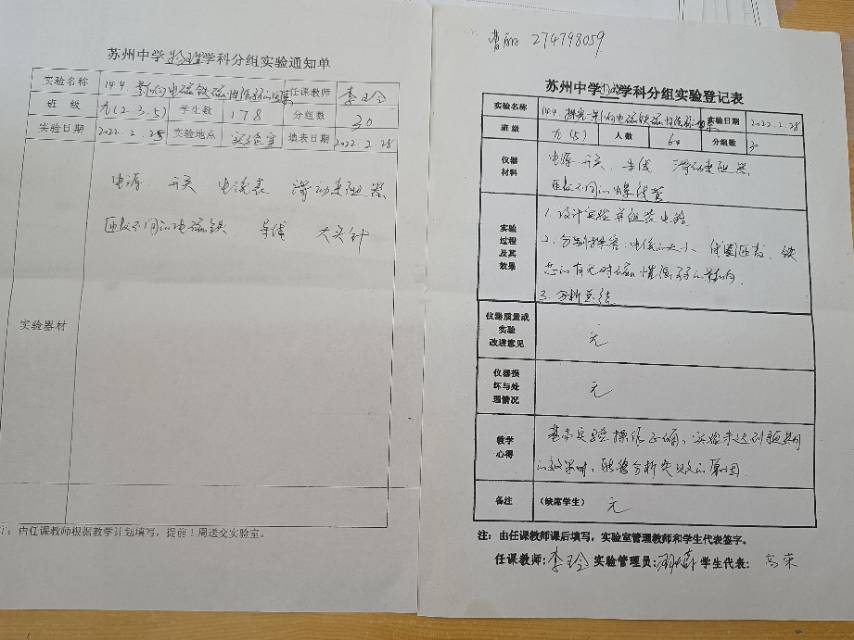 苏州中学物理学科分组实验通知单
实验名称 14.4 影响电磁铁磁性强弱的因素 任课教师 李玲
班 级 九(2.3.5) 学生数 178 分组数 30
实验日期 2022.2.28 实验地点 实验室 填表日期 2022.2.28
实验器材
电源 开关 电流表 滑动变阻器
匝数不同的电磁铁 导线 大头针
注：由任课教师根据教学计划填写，提前1周送交实验室。
274798059
苏州中学物理学科分组实验登记表
实验名称 14.4 探究影响电磁铁磁性强弱的因素 实验日期 2022.2.28
班级 九(5) 人数 60 分组数 30
仪器材料
电源 开关 导线 滑动变阻器
匝数不同的螺线管
实验过程及其效果
1. 设计实验并组装电路
2. 分别探究：电流的大小、线圈匝数、铁
芯的有无对磁性强弱的影响
3. 分析总结
仪器质量或实验改进意见 无
仪器损坏与处理情况 无
教学心得
基本实验操作正确，实验未达到预期
的效果时，能够分析失败的原因
备注 (缺席学生) 无
注：由任课教师课后填写，实验室管理教师和学生代表签字。
任课教师：李玲 实验管理员： 学生代表：